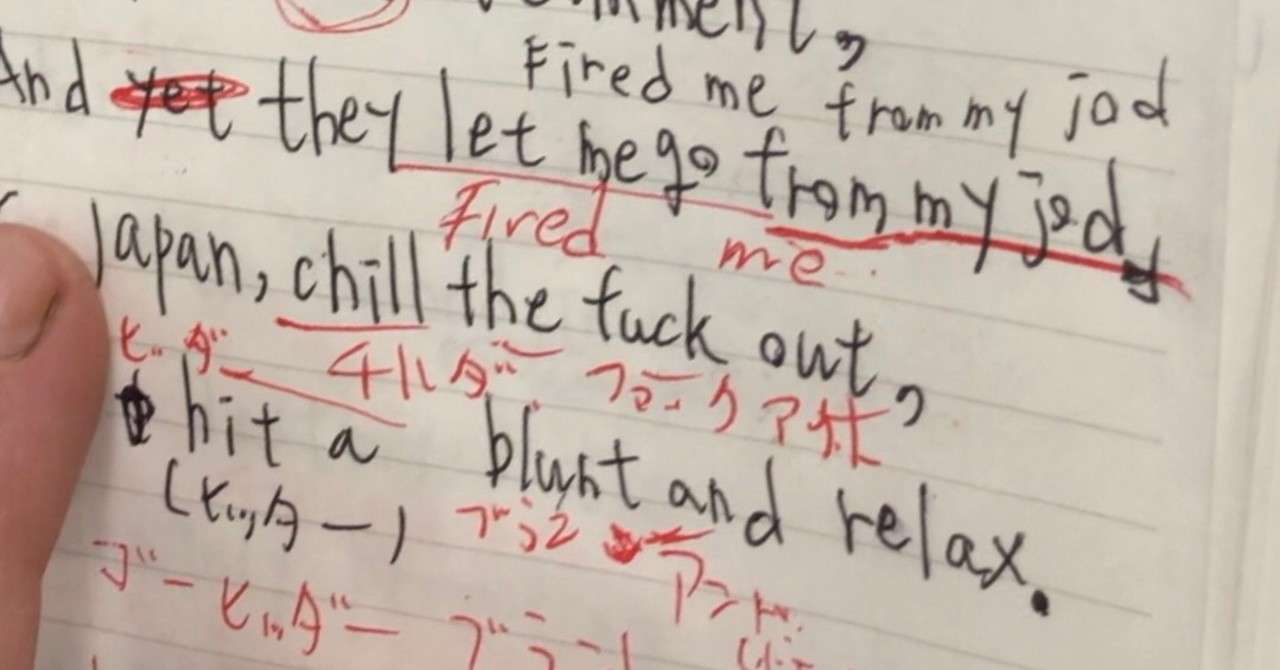 Fired me from my jod
And yet they let me go from my jod,
Fired me
Japan, chill the fuck out,
ヒッダ チルダ ファック アウ
hit a blunt and relax.
(ヒッター) ブラン アンド
ゴーヒッダー ブラン